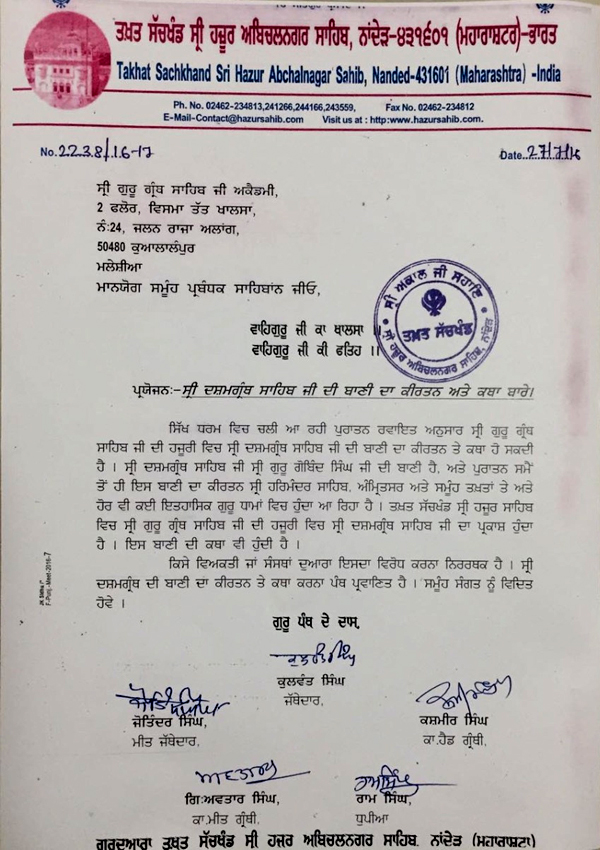 ਤਖ਼ਤ ਸੱਚਖੰਡ ਸ੍ਰੀ ਹਜ਼ੂਰ ਅਬਿਚਲਨਗਰ ਸਾਹਿਬ, ਨਾਂਦੇੜ-੪੩੧੬੦੧ (ਮਹਾਰਾਸ਼ਟਰ)-ਭਾਰਤ
Takhat Sachkhand Sri Hazur Abchalnagar Sahib, Nanded-431601 (Maharashtra) -India
Ph. No. 02462-234813,241266,244166,243559, Fax No. 02462-234812
E-Mail-Contact@hazursahib.com Visit us at : http:www.hazursahib.com.
No. 2238/16-17 Date. 27/7/16
ਸ੍ਰੀ ਗੁਰੂ ਗ੍ਰੰਥ ਸਾਹਿਬ ਜੀ ਅਕੈਡਮੀ,
2 ਫਲੋਰ, ਵਿਸਮਾ ਤੱਤ ਖਾਲਸਾ,
ਨੰ:24, ਜਲਨ ਰਾਜਾ ਅਲਾਂਗ,
50480 ਕੁਆਲਾਲੰਪੁਰ
ਮਲੇਸ਼ੀਆ
ਮਾਨਯੋਗ ਸਮੂੰਹ ਪ੍ਰਬੰਧਕ ਸਾਹਿਬਾਂਨ ਜੀਓ,
ਸ੍ਰੀ ਅਕਾਲ ਜੀ ਸਹਾਇ
ਤਖ਼ਤ ਸੱਚਖੰਡ
ਸ੍ਰੀ ਹਜ਼ੂਰ ਅਬਿਚਲਨਗਰ ਸਾਹਿਬ, ਨਾਂਦੇੜ
ਵਾਹਿਗੁਰੂ ਜੀ ਕਾ ਖਾਲਸਾ ।।
ਵਾਹਿਗੁਰੂ ਜੀ ਕੀ ਫਤਿਹ ।।
ਪ੍ਰਯੋਜਨ:-ਸ੍ਰੀ ਦਸ਼ਮਗ੍ਰੰਥ ਸਾਹਿਬ ਜੀ ਦੀ ਬਾਣੀ ਦਾ ਕੀਰਤਨ ਅਤੇ ਕਥਾ ਬਾਰੇ।
ਸਿੱਖ ਧਰਮ ਵਿਚ ਚਲੀ ਆ ਰਹੀ ਪੁਰਾਤਨ ਰਵਾਇਤ ਅਨੁਸਾਰ ਸ੍ਰੀ ਗੁਰੂ ਗ੍ਰੰਥ
ਸਾਹਿਬ ਜੀ ਦੀ ਹਜ਼ੂਰੀ ਵਿਚ ਸ੍ਰੀ ਦਸ਼ਮਗ੍ਰੰਥ ਸਾਹਿਬ ਜੀ ਦੀ ਬਾਣੀ ਦਾ ਕੀਰਤਨ ਤੇ ਕਥਾ ਹੋ ਸਕਦੀ
ਹੈ । ਸ੍ਰੀ ਦਸ਼ਮਗ੍ਰੰਥ ਸਾਹਿਬ ਜੀ ਸ੍ਰੀ ਗੁਰੂ ਗੋਬਿੰਦ ਸਿੰਘ ਜੀ ਦੀ ਬਾਣੀ ਹੈ, ਅਤੇ ਪੁਰਾਤਨ ਸਮੈਂ
ਤੋਂ ਹੀ ਇਸ ਬਾਣੀ ਦਾ ਕੀਰਤਨ ਸ੍ਰੀ ਹਰਿਮੰਦਰ ਸਾਹਿਬ, ਅੰਮ੍ਰਿਤਸਰ ਅਤੇ ਸਮੂੰਹ ਤਖ਼ਤਾਂ ਤੇ ਅਤੇ
ਹੋਰ ਵੀ ਕਈ ਇਤਹਾਸਿਕ ਗੁਰੂ ਧਾਮਾਂ ਵਿਚ ਹੁੰਦਾ ਆ ਰਿਹਾ ਹੈ । ਤਖ਼ਤ ਸੱਚਖੰਡ ਸ੍ਰੀ ਹਜ਼ੂਰ ਸਾਹਿਬ
ਵਿਚ ਸ੍ਰੀ ਗੁਰੂ ਗ੍ਰੰਥ ਸਾਹਿਬ ਜੀ ਦੀ ਹਜ਼ੂਰੀ ਵਿਚ ਸ੍ਰੀ ਦਸ਼ਮਗ੍ਰੰਥ ਸਾਹਿਬ ਜੀ ਦਾ ਪ੍ਰਕਾਸ਼ ਹੁੰਦਾ
ਹੈ । ਇਸ ਬਾਣੀ ਦੀ ਕਥਾ ਵੀ ਹੁੰਦੀ ਹੈ ।
ਕਿਸੇ ਵਿਅਕਤੀ ਜਾਂ ਸੰਸਥਾਂ ਦੁਆਰਾ ਇਸਦਾ ਵਿਰੋਧ ਕਰਨਾ ਨਿਰਰਥਕ ਹੈ । ਸ੍ਰੀ
ਦਸ਼ਮਗ੍ਰੰਥ ਦੀ ਬਾਣੀ ਦਾਂ ਕੀਰਤਨ ਤੇ ਕਥਾ ਕਰਨਾ ਪੰਥ ਪ੍ਰਵਾਣਿਤ ਹੈ । ਸਮੂੰਹ ਸੰਗਤ ਨੂੰ ਵਿਦਿਤ
ਹੋਵੇ ।
F-Punj-Meet-2016-7
ਗੁਰੂ ਪੰਥ ਦੇ ਦਾਸ,
ਕੁਲਵੰਤ ਸਿੰਘ
ਜੱਥੇਦਾਰ,
ਜੋਤਿੰਦਰ ਸਿੰਘ, ਕਸ਼ਮੀਰ ਸਿੰਘ
ਮੀਤ ਜੱਥੇਦਾਰ, ਕਾ.ਹੈਡ ਗ੍ਰੰਥੀ,
ਗਿ:ਅਵਤਾਰ ਸਿੰਘ, ਰਾਮ ਸਿੰਘ,
ਕਾ.ਮੀਤ ਗ੍ਰੰਥੀ, ਧੁਪੀਆ
ਗੁਰਦੁਆਰਾ ਤਖ਼ਤ ਸੱਚਖੰਡ ਸ੍ਰੀ ਹਜ਼ੂਰ ਅਬਿਚਲਨਗਰ ਸਾਹਿਬ, ਨਾਂਦੇੜ (ਮਹਾਰਾਸ਼ਟਰਾ)